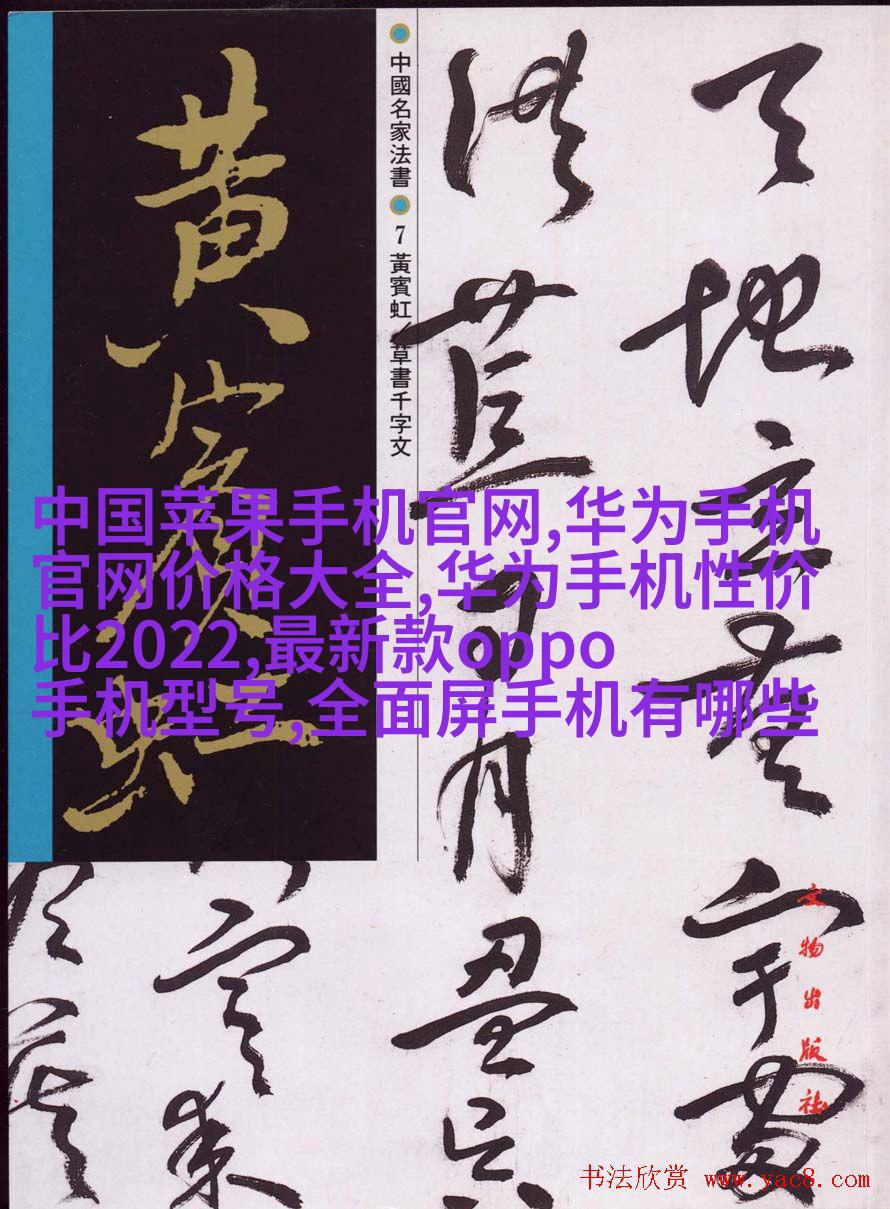 天地玄黃宇宙
洪荒日月盈昃
寒來
中國名家法書
7 黃賓虹/草書千字文
黃賓虹
中国苹果手机官网,华为手机
官网价格大全,华为手机性价
比2022,最新款oppo
手机型号,全面屏手机有哪些
文物出版社
书法欣赏 www.yac8.com